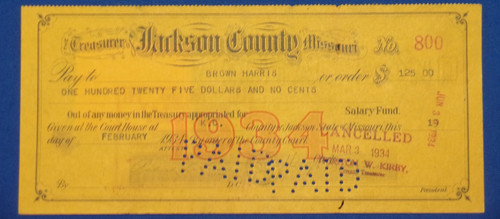 Treasurer Jackson County Missouri. No. 800
Pay to BROWN HARRIS or order $ 125 00
ONE HUNDRED TWENTY FIVE DOLLARS AND NO CENTS
Out of any money in the Treasury appropriated for Salary Fund.
Given at the Court House at County of Jackson State of Missouri this 19
day of FEBRUARY 193 by order of the County Court.
1934
CANCELLED
MAR 3 1934
W. KIRBY,
County Treasurer
ATTEST
PAID PAID
President